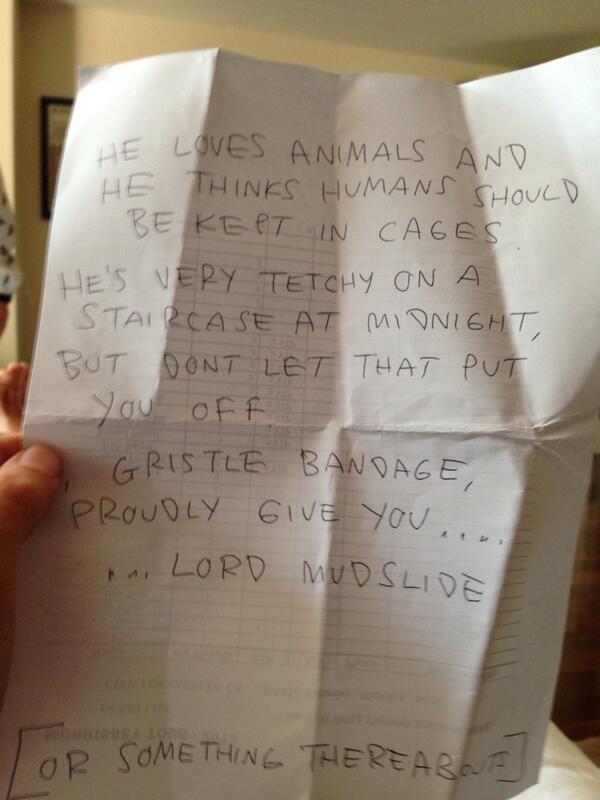 HE LOVES ANIMALS AND
HE THINKS HUMANS SHOULD
BE KEPT IN CAGES.
HE'S VERY TETCHY ON A
STAIRCASE AT MIDNIGHT,
BUT DONT LET THAT PUT
YOU OFF
, GRISTLE BANDAGE,
PROUDLY GIVE YOU .....
.... LORD MUDSLIDE
MORRISSEY TOUR - 2013
[OR SOMETHING THEREABOUTS]